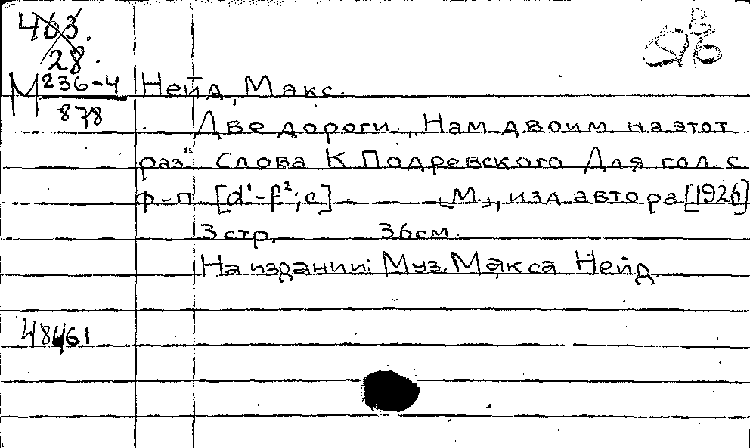 463.
28.
М 236-4
878
Нейд, Макс.
Две дороги. „Нам двоим на этот
раз" Слова К Подревского Для гол. с
ф-п [d¹-f²; c] М., изд. автора [1926]
3 стр. 36 см.
На издании: Муз. Макса Нейд
48461